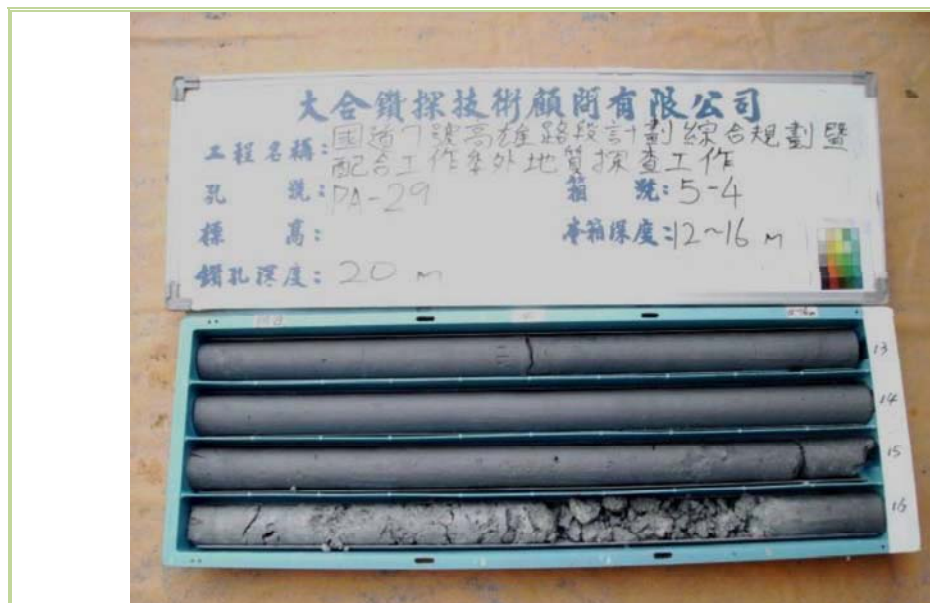 大合鑽探技術顧問有限公司
工程名稱：國道7號高雄路段計劃綜合規劃暨
配合工作委外地質探查工作
孔 號：PA-29 箱 號：5-4
標 高： 本箱深度：12~16 m
鑽孔深度：20 m
13
14
15
16